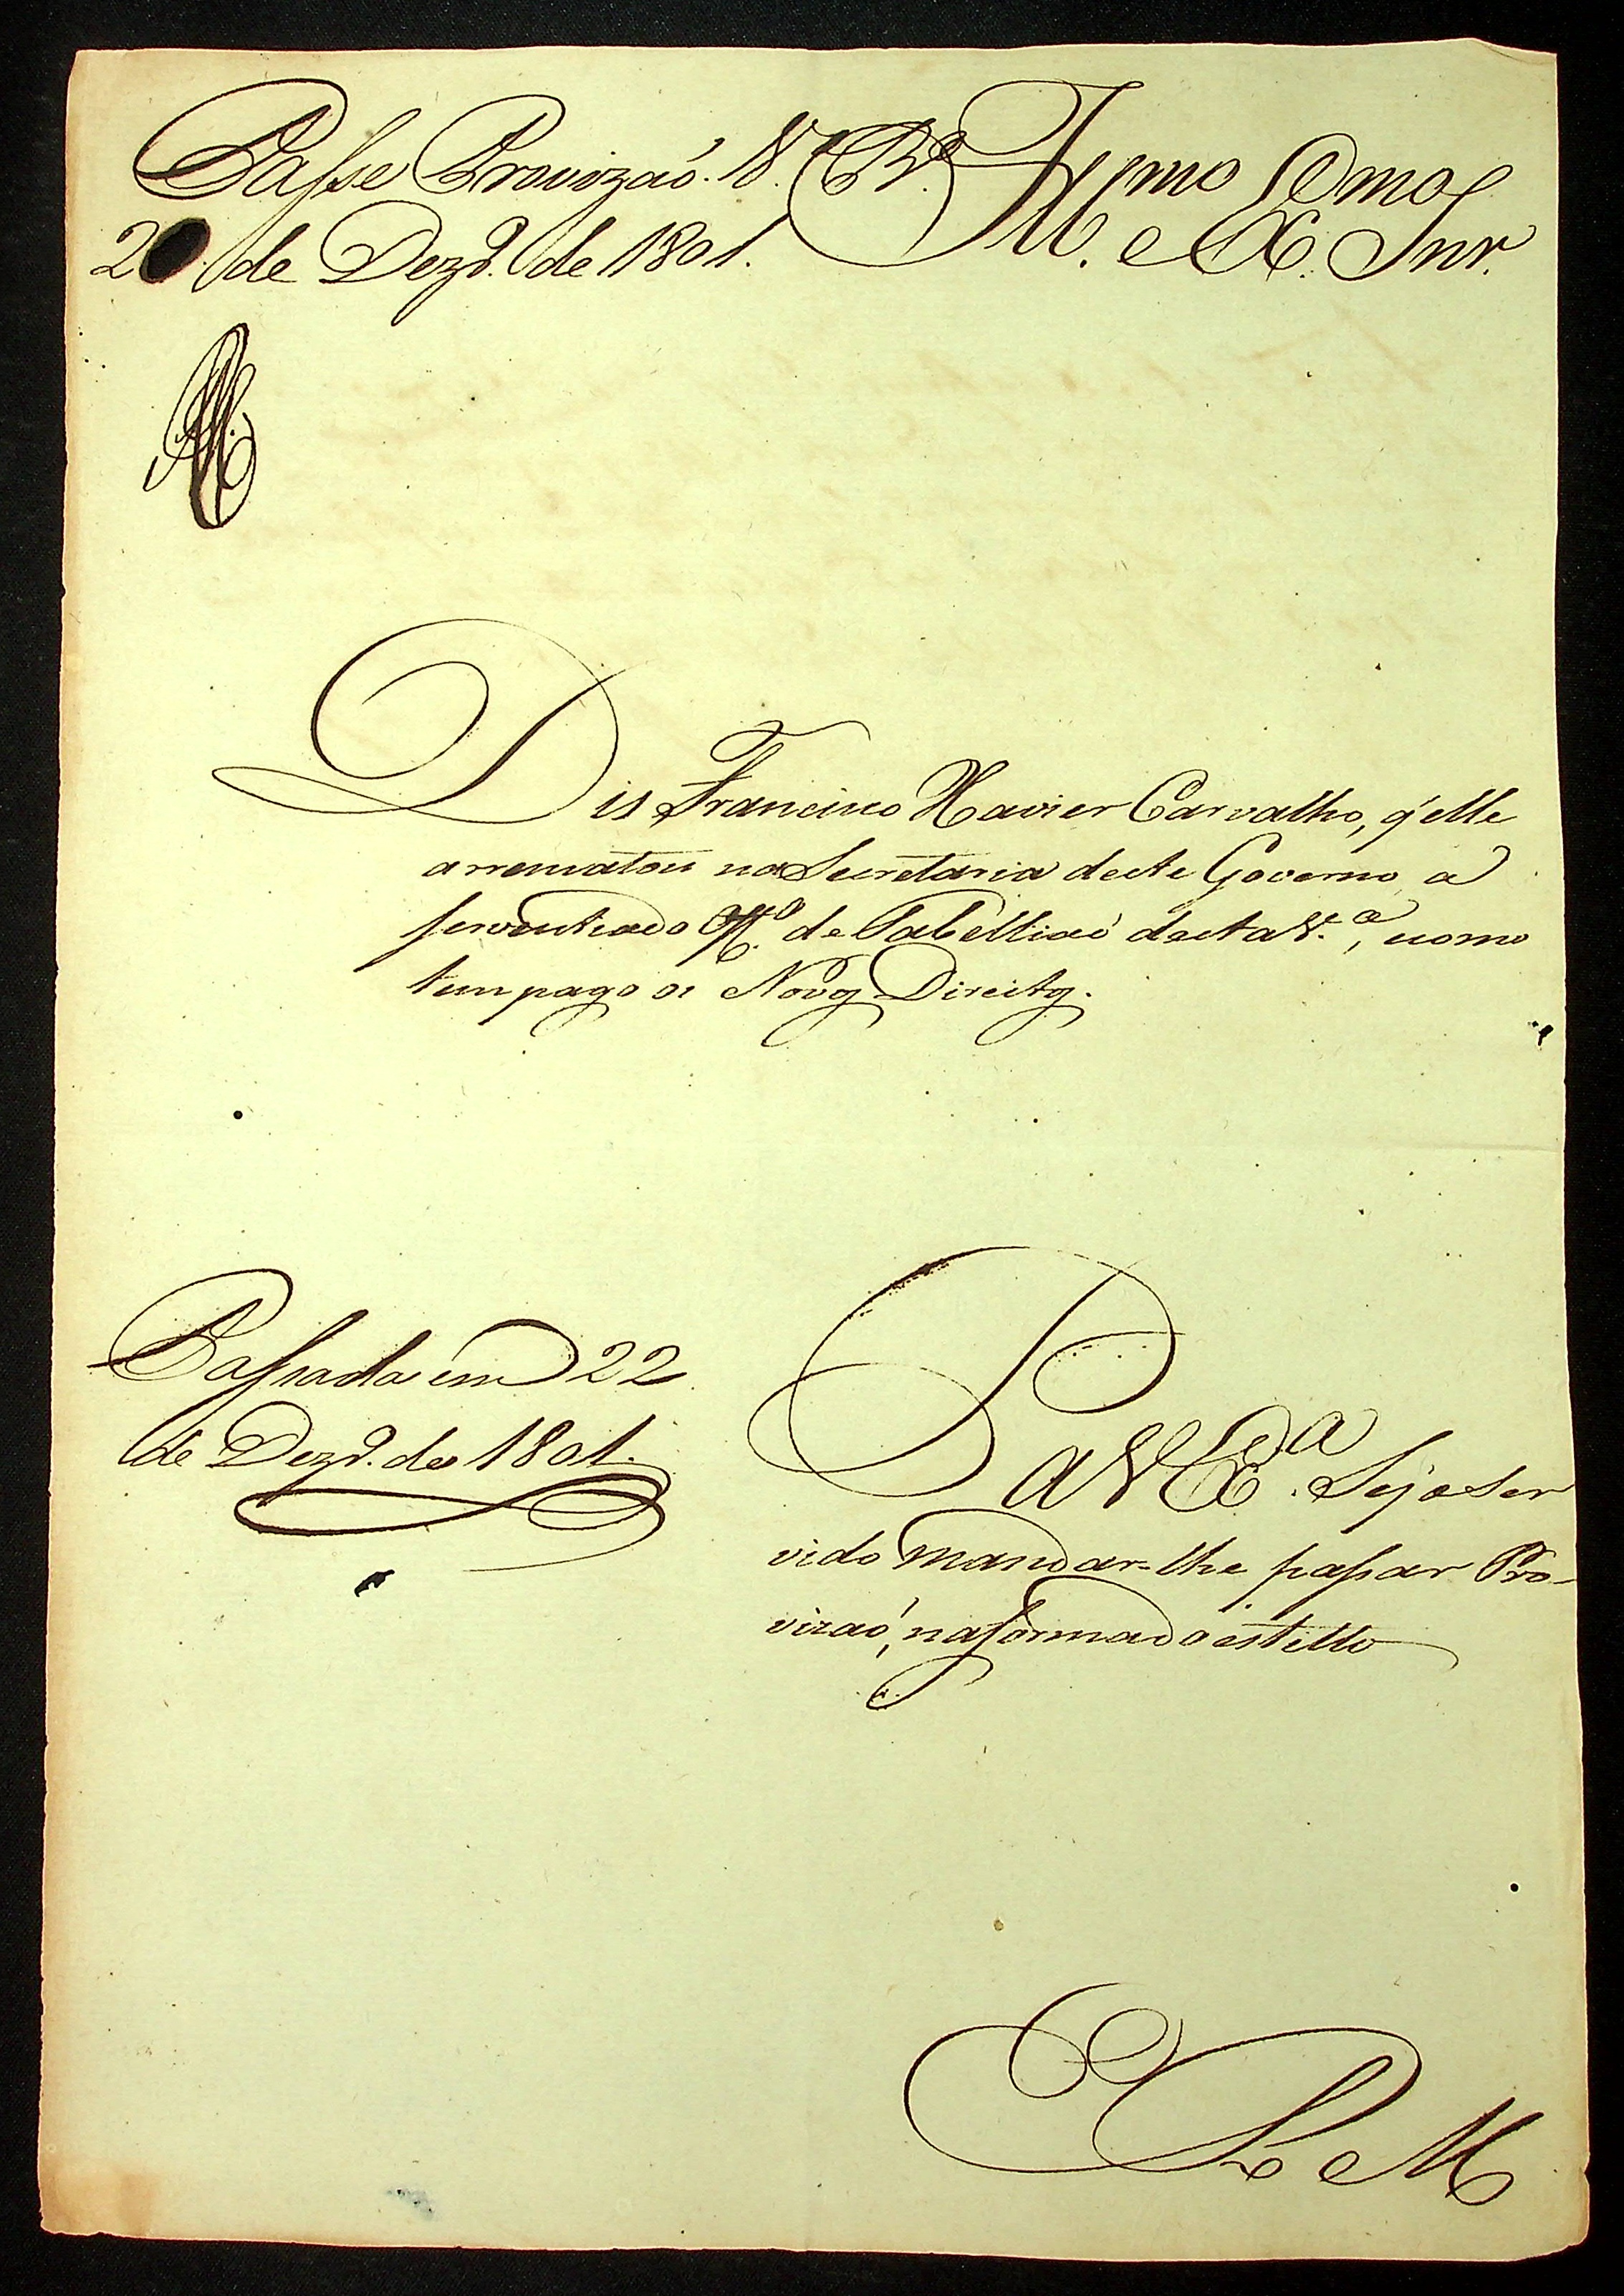 Passe Provizaõ. V.ª B.ª
20 de Dezº. de 1801.
Illmo. e Exmo. Snr.
Dis Francisco Xavier Carvalho, q' elle
arrematou na Secretaria deste Governo a
serventia do Offº. de Tabelliaõ desta V.ª, como
tem pago os Novos Direitos.
Passada em 22
de Dezº. de 1801.
P a V Exª. Seja ser
vido mandar-lhe passar Pro-
vizaõ, na forma do estillo
E R M